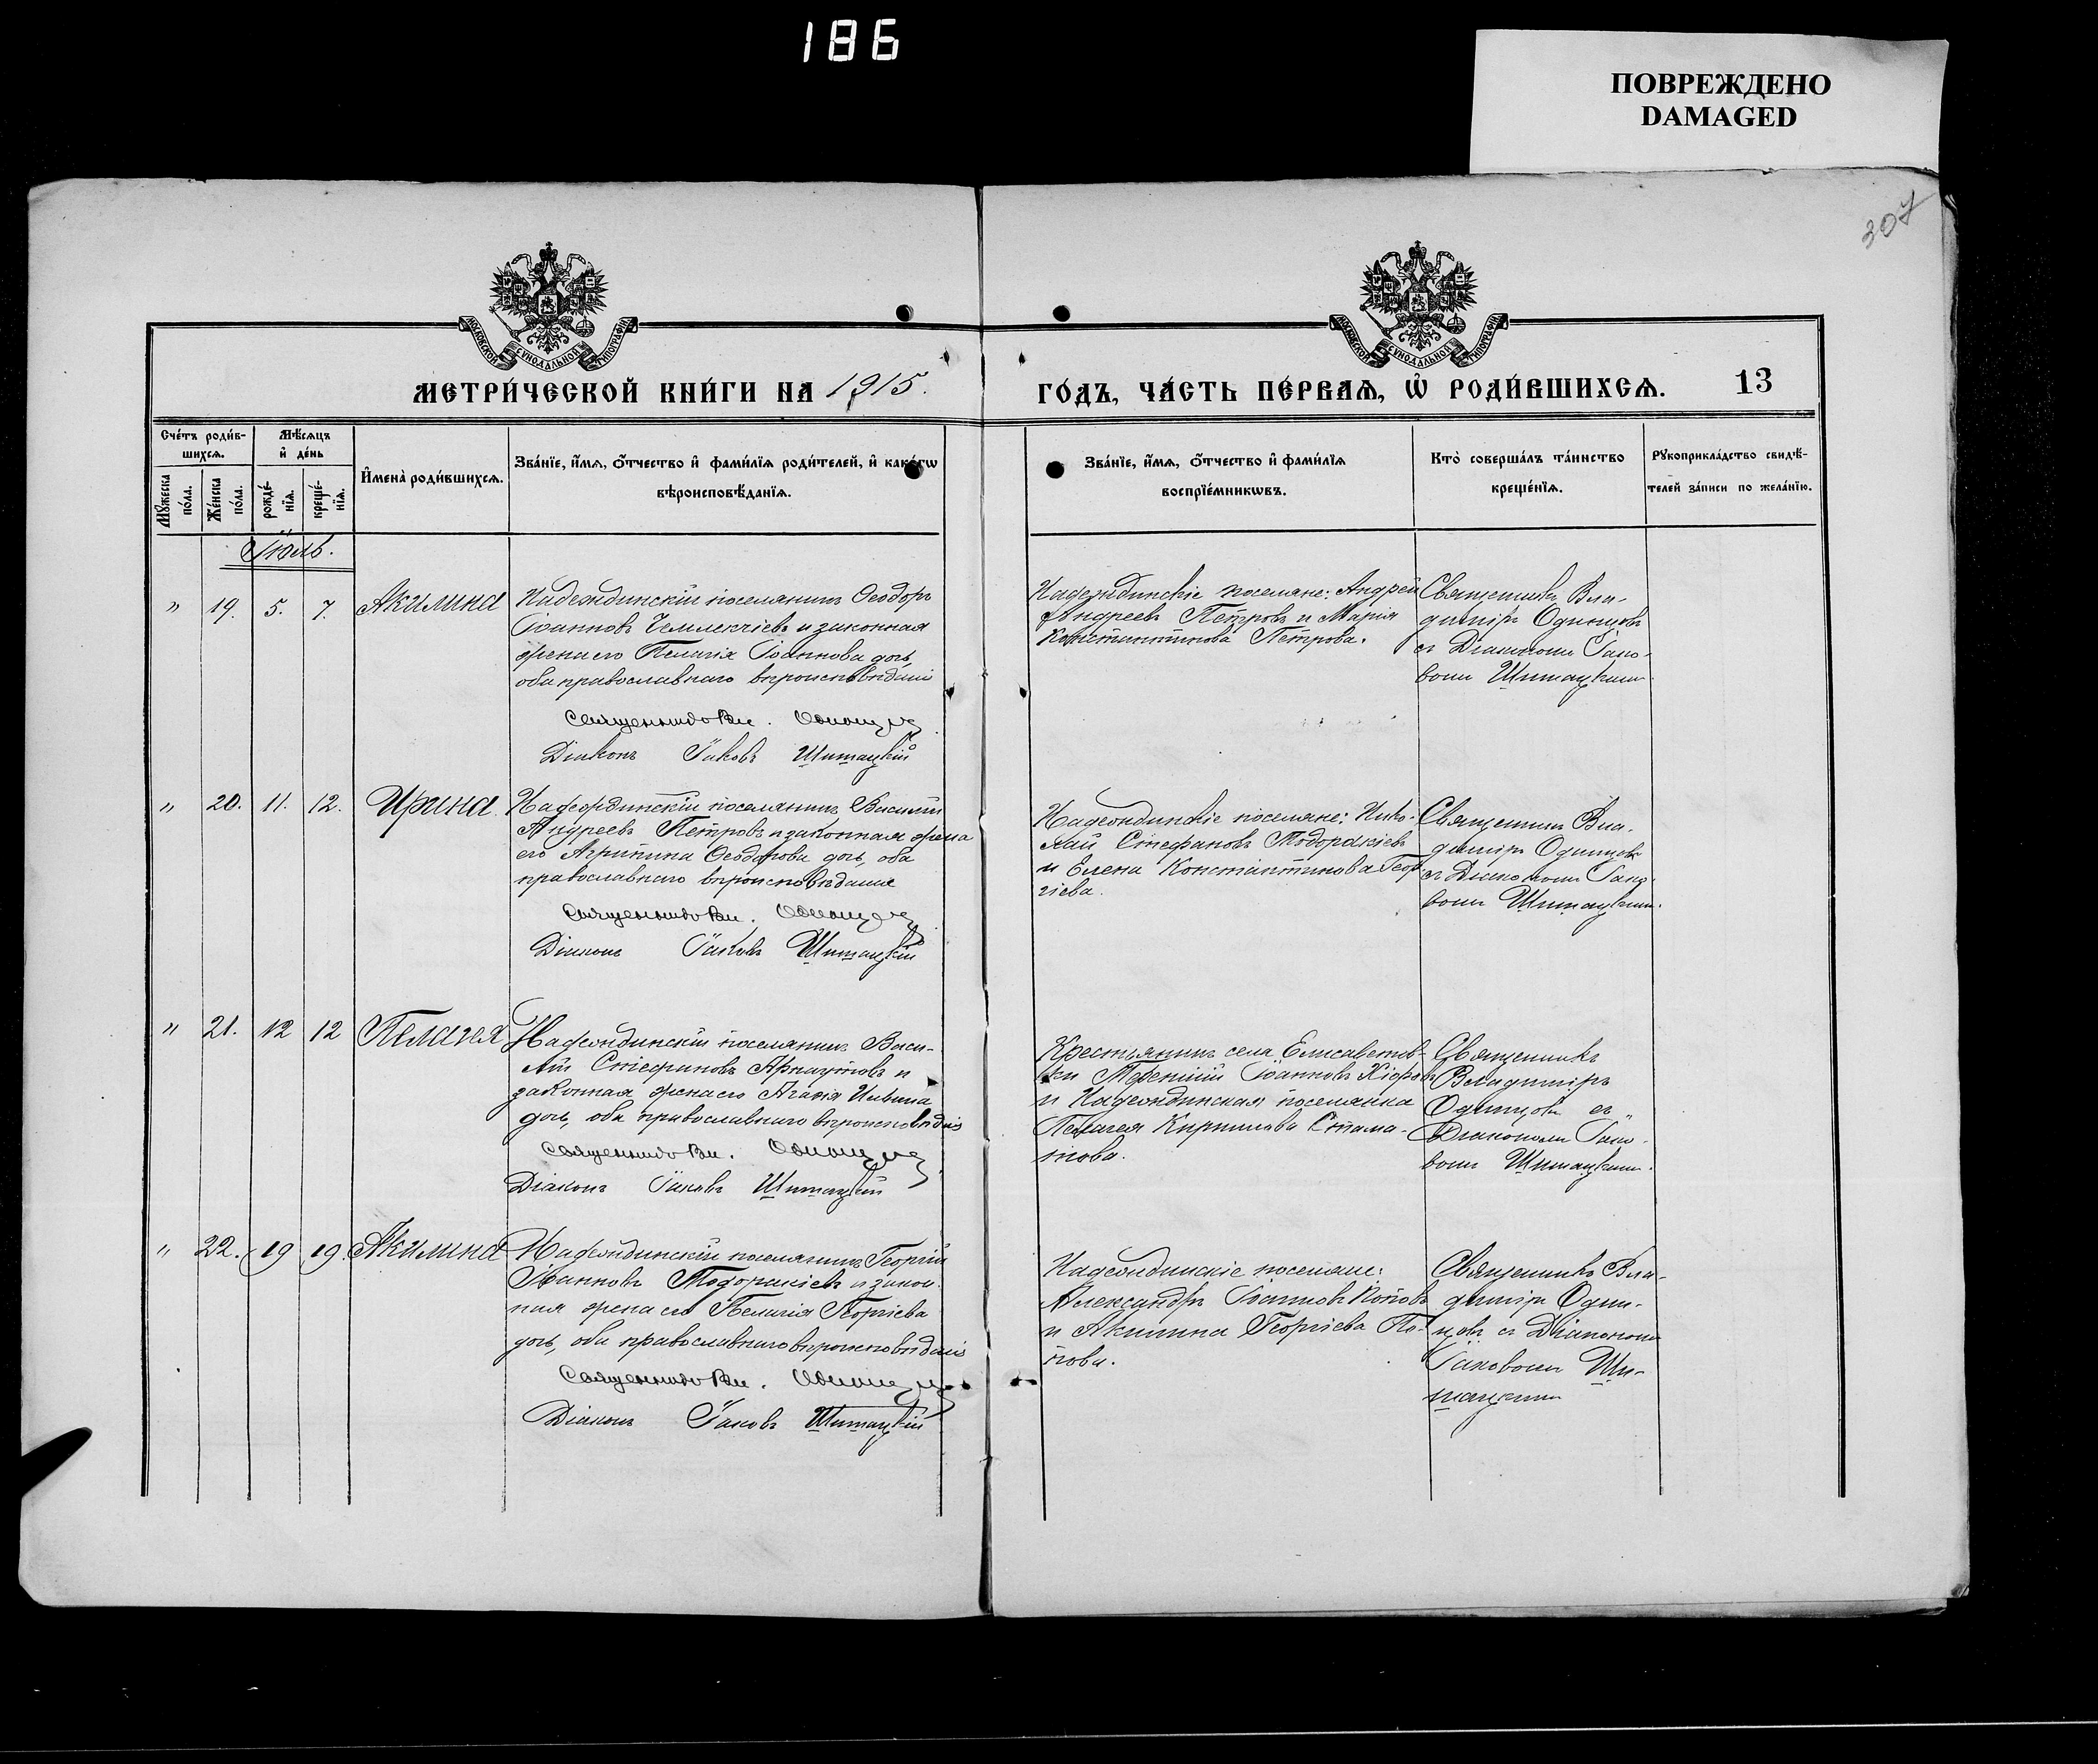 186
ПОВРЕЖДЕНО
DAMAGED
307
МОСКОВСКОЙ СѴНОДАЛЬНОЙ ТИПОГРАФІИ
МОСКОВСКОЙ СѴНОДАЛЬНОЙ ТИПОГРАФІИ
МЕТРИ́ЧЕСКОЙ КНИ́ГИ НА 1915.
ГО́ДЪ, ЧА́СТЬ ПЕ́РВАѦ, Ѽ РОДИ́ВШИХСѦ. 13
Сче́тъ роди́в-
шихсѧ.
Мꙋ́жеска
по́ла.
Же́нска
по́ла.
Мѣ́сѧцъ
и҆ де́нь
рожде́-
нїѧ.
креще́-
нїѧ.
И҆мена̀ роди́вшихсѧ.
Зва́нїе, и҆́мѧ, ѻ҆́тчество и҆ фами́лїѧ роди́телей, и҆ како́гѡ
вѣроисповѣ́данїѧ.
Зва́нїе, и҆́мѧ, ѻ҆́тчество и҆ фами́лїѧ
воспрїе́мникѡвъ.
Кто̀ соверша́лъ та́инство
креще́нїѧ.
Рꙋкоприкла́дство свидѣ́-
телей за́писи по жела́нїю.
Іюль.
" 19. 5. 7. Акилина
Надеждинскій поселянинъ Ѳеодоръ
Іоанновъ Чемлекчіевъ и законная
жена его Пелагія Іоаннова дочь,
оба православнаго вѣроисповѣданія
Священникъ Вл. Одинцовъ
Діаконъ Іаковъ Шишацкій
Надеждинскіе поселяне: Андрей
Андреевъ Петровъ и Марія
Константинова Петрова.
Священникъ Вла-
диміръ Одинцовъ
съ Діакономъ Іако-
вомъ Шишацкимъ.
" 20. 11. 12. Ирина
Надеждинскій поселянинъ Василій
Андреевъ Петровъ и законная жена
его Агрипина Ѳеодорова дочь, оба
православнаго вѣроисповѣданія
Священникъ Вл. Одинцовъ
Діаконъ Іаковъ Шишацкій
Надеждинскіе поселяне: Нико-
лай Стефановъ Тодоракіевъ
и Елена Константинова Геор-
гіева.
Священникъ Вла-
диміръ Одинцовъ
съ Діакономъ Іако-
вомъ Шишацкимъ.
" 21. 12 12 Пелагея
Надеждинскій поселянинъ Васи-
лій Стефановъ Арнаутовъ и
законная жена его Агаѳія Ильина
дочь, оба православнаго вѣроисповѣданія
Священникъ Вл. Одинцовъ
Діаконъ Іаковъ Шишацкій
Крестьянинъ села Елисаветов-
ки Іоанновъ
и Надеждинская поселянка
Пелагея Кириллова Стама-
това.
Священникъ
Владиміръ
Одинцовъ съ
Діакономъ Іако-
вомъ Шишацкимъ.
" 22. 19 19. Акилина
Надеждинскій поселянинъ Георгій
Іоанновъ Тодоракіевъ и закон-
ная жена его Пелагія Георгіева
дочь, оба православнаго вѣроисповѣданія
Священникъ Вл. Одинцовъ
Діаконъ Іаковъ Шишацкій
Надеждинскіе поселяне:
Александръ Іоанновъ Поповъ
и Акилина Георгіева По-
пова.
Священникъ Вла-
диміръ Один-
цовъ съ Діакономъ
Іаковомъ Ши-
шацкимъ